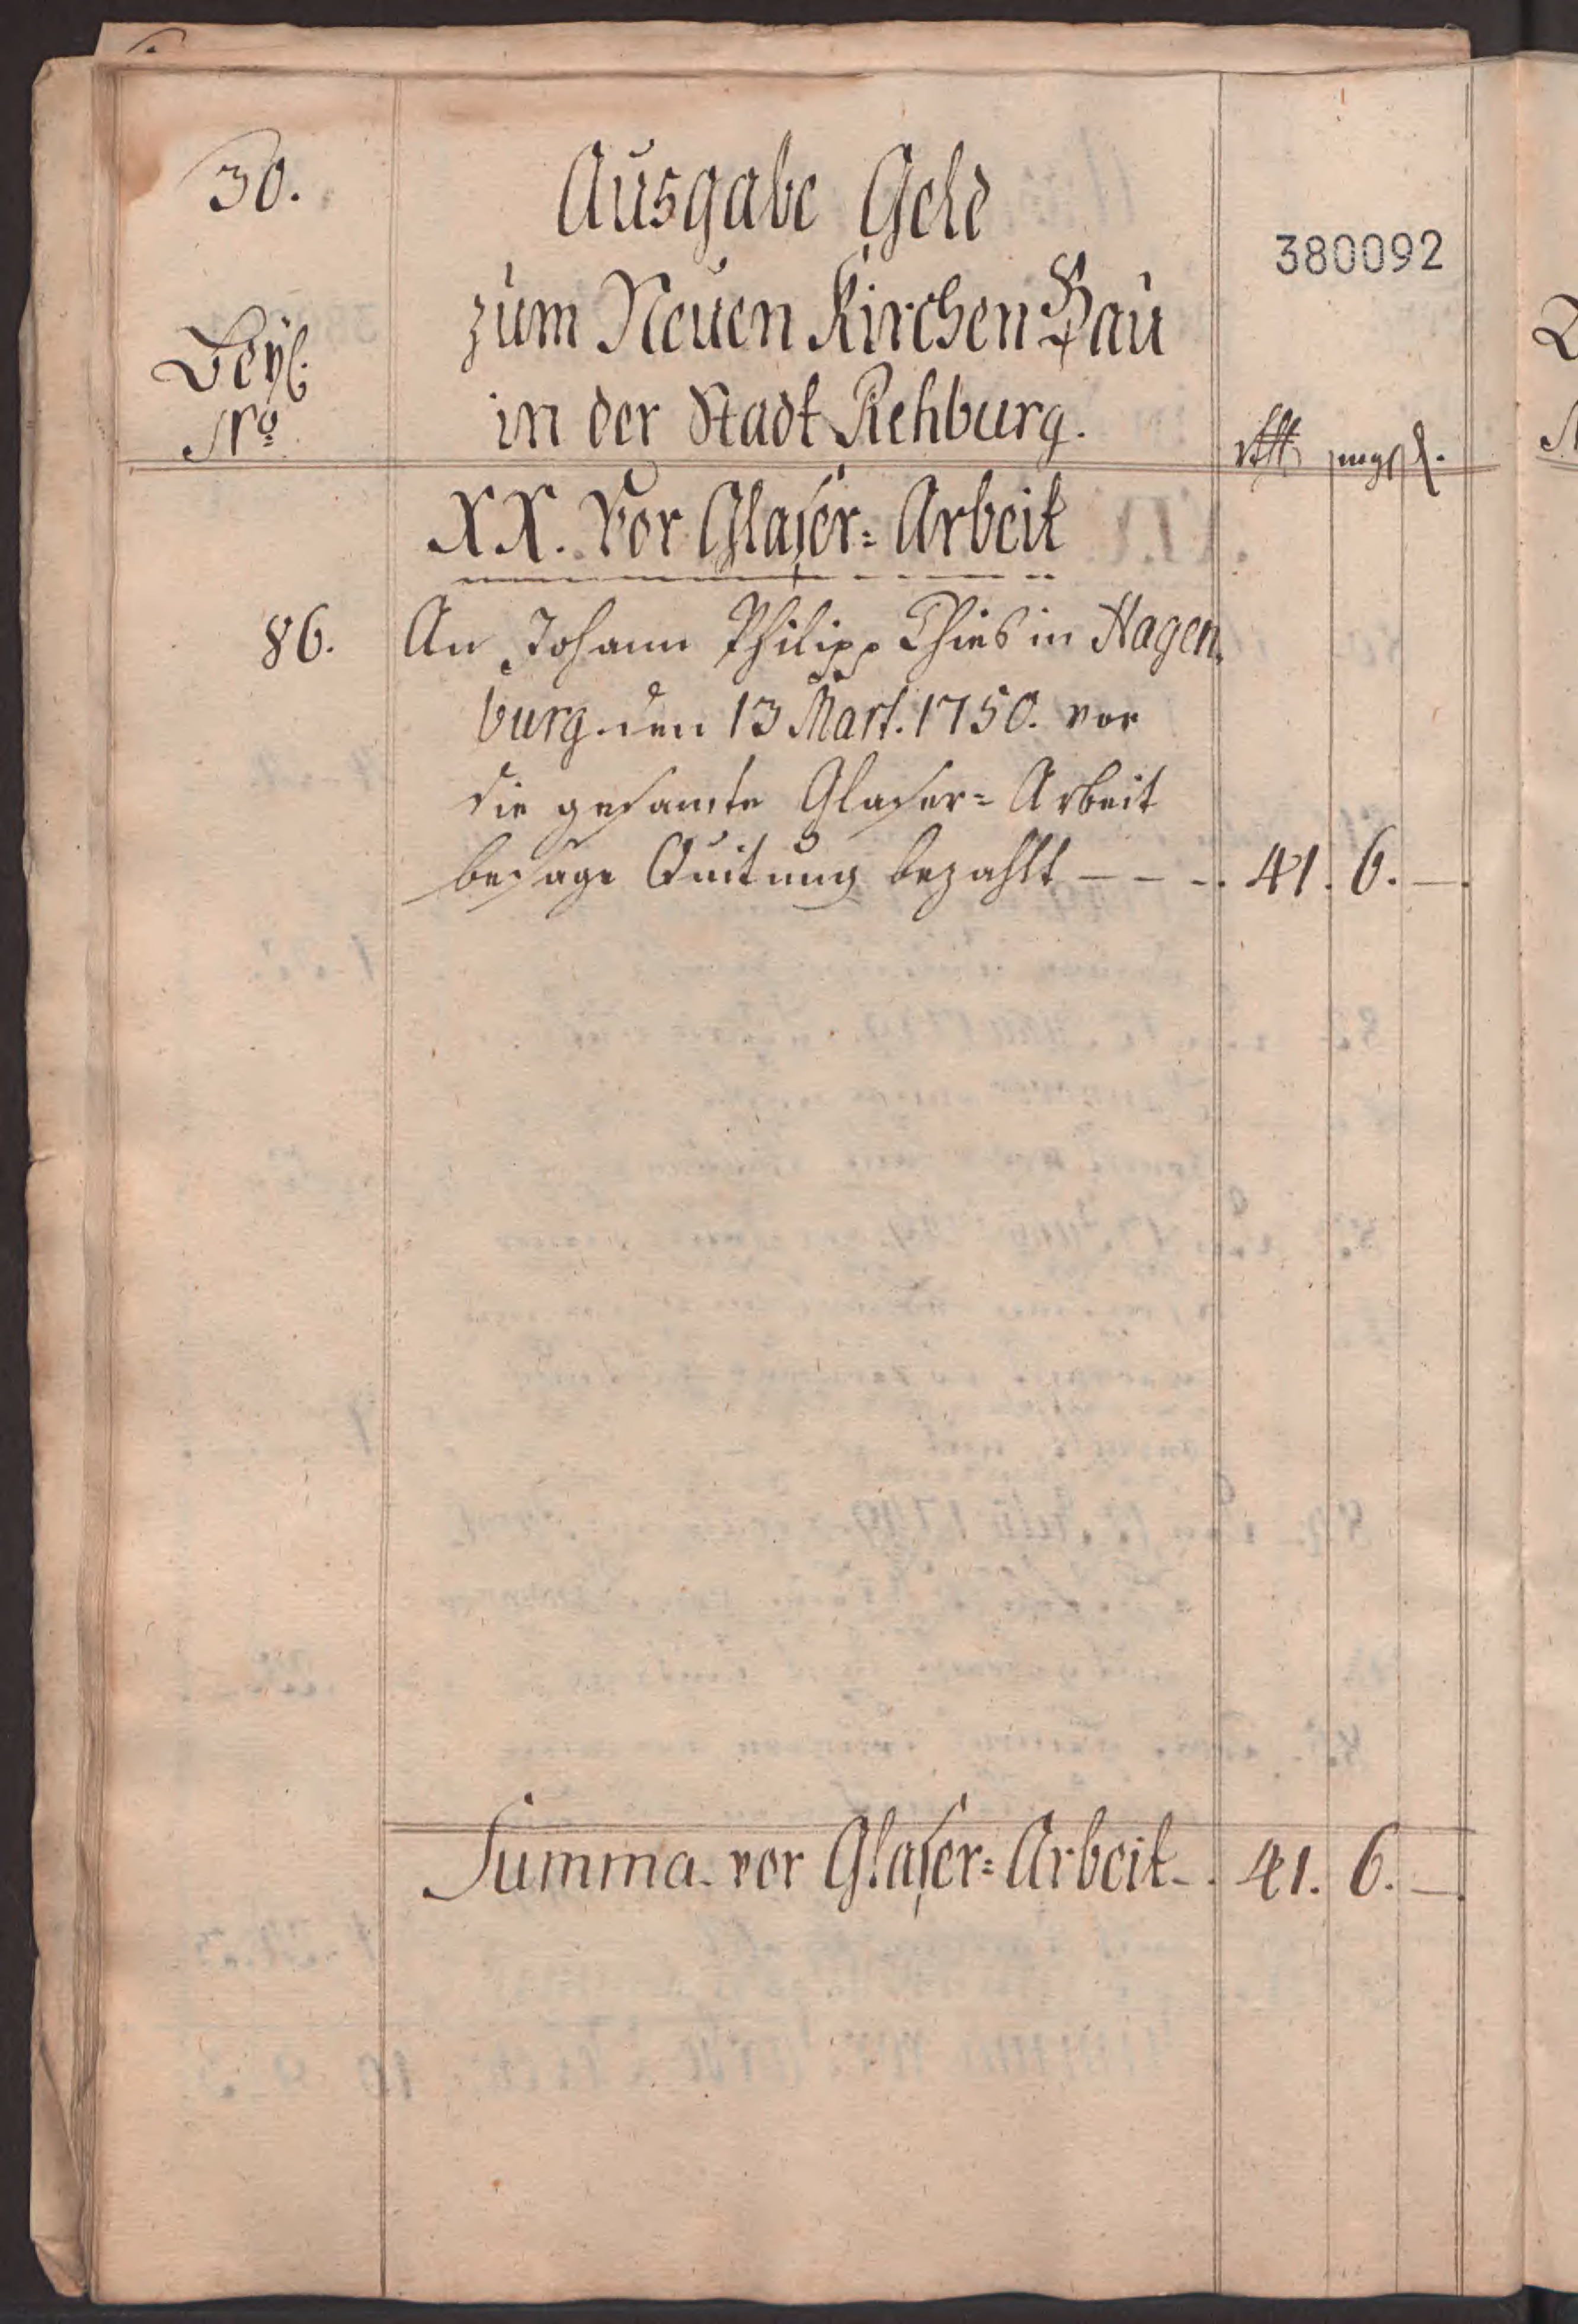 30.
Ausgabe Geld
380092
zum Neuen Kirchen Bau
Beyl.
in der Stadt Rehburg.
No
rthlr mgr d.
XX. Vor Glaser=Arbeit
86. An Johann Philipp Thies in Hagen,
burg den 13 Mart. 1750. vor
die gesamte Glaser=Arbeit
besage Quitung bezahlt - - -. 41. 6. -.
Summa vor Glaser=Arbeit -. 41. 6. -.